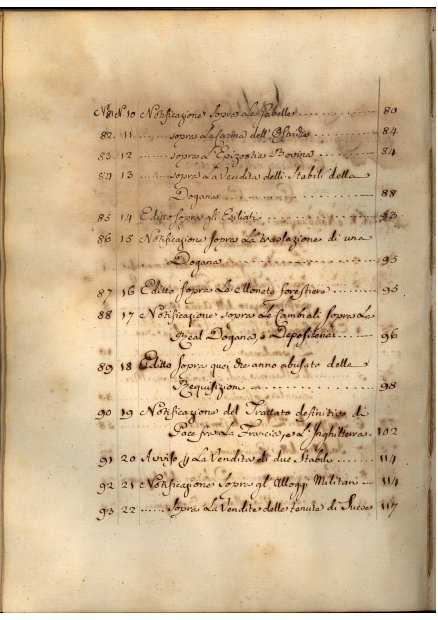 N.81 N.10 Notificazione sopra le Gabelle ........ 80
82. 11 ........ sopra la rapina dell' ........ 84
83 12 ........ sopra l'Epizootia Bovina ........ 84
84 13 ........ sopra la Vendita delli Stabili della
Dogana ........ 88
85 14 Editto sopra gli Esiliati ........ 93
86 15 Notificazione sopra la traslazione di una
Dogana ........ 95
87 16 Editto sopra le Monete forestiere ........ 95
88 17 Notificazione sopra le Cambiali sopra la
Real Dogana e Depositeria ........ 96
89 18 Editto sopra quei che anno abusato delle
Requisizioni ........ 98
90 19 Notificazione del Trattato definitivo di
Pace fra la Francia, e l'Inghilterra 102
91 20 Avviso p la Vendita di due Stabili ........ 114
92 21 Notificazione sopra gl'Alloggi Militari ........ 114
93 22 ........ sopra la Vendita delle tenute di 117